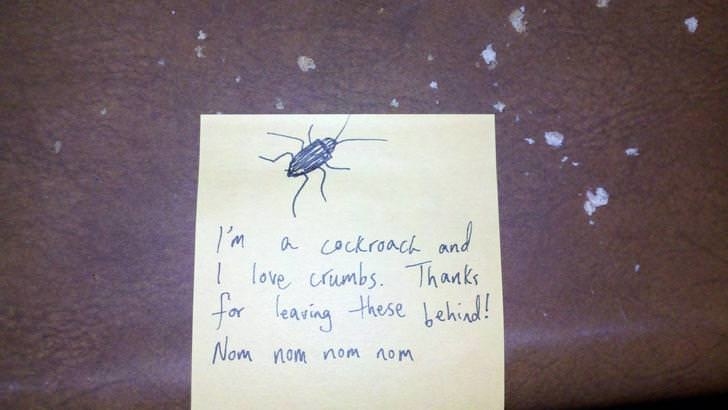 I'm a cockroach and
I love crumbs. Thanks
for leaving these behind!
Nom nom nom nom